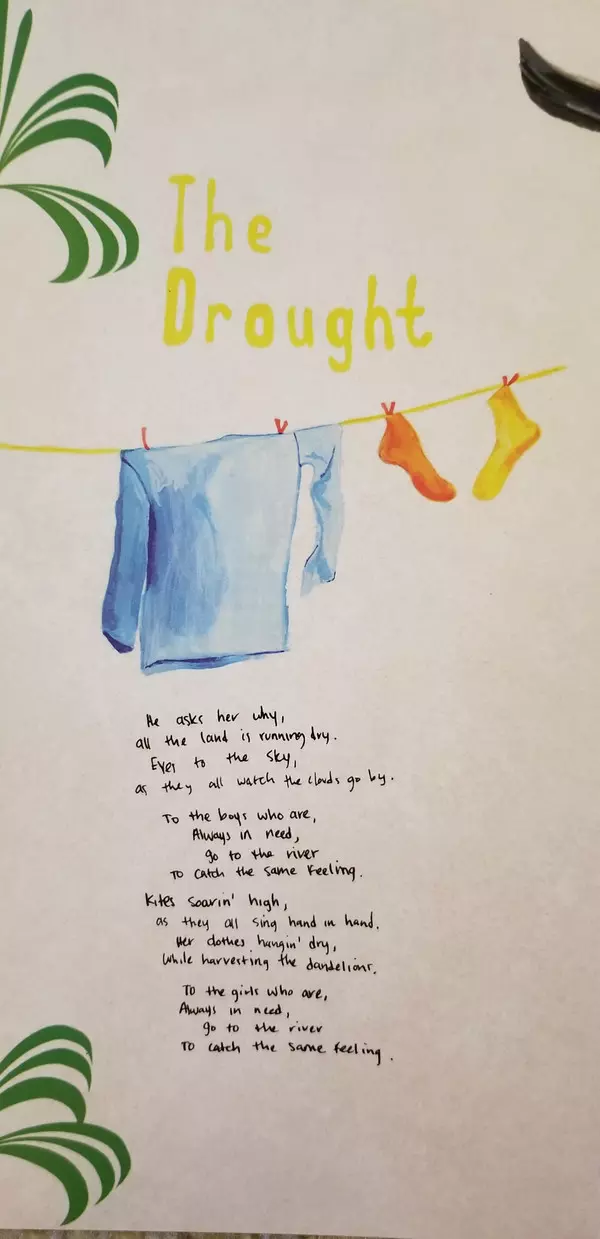 The
Drought
He asks her why,
all the land is running dry.
Eyes to the sky,
as they all watch the clouds go by.
To the boys who are,
Always in need,
go to the river
To catch the same feeling.
Kites soarin' high,
as they all sing hand in hand.
Her clothes hangin' dry,
While harvesting the dandelions.
To the girls who are,
Always in need,
go to the river
To catch the same feeling.